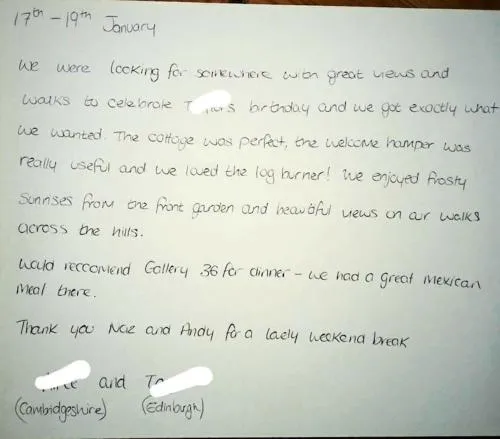 17th - 19th January
We were looking for somewhere with great views and
walks to celebrate T s birthday and we got exactly what
we wanted. The cottage was perfect, the welcome hamper was
really useful and we loved the log burner! We enjoyed frosty
sunrises from the front garden and beautiful views on our walks
across the hills.
Would reccomend Gallery 36 for dinner - we had a great Mexican
meal there.
Thank you Naz and Andy for a lovely weekend break
and
(Cambridgeshire) (Edinburgh)